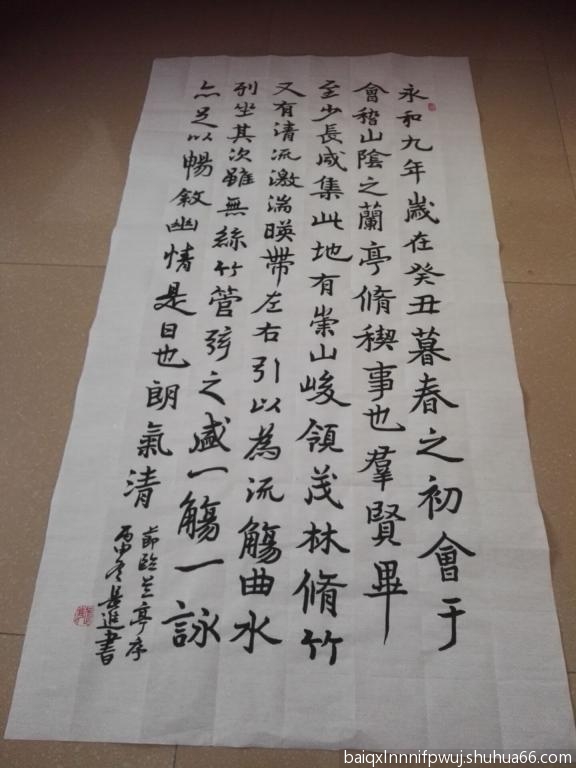 永和九年歲在癸丑暮春之初會于
會稽山陰之蘭亭脩稧事也羣賢畢
至少長咸集此地有崇山峻領茂林脩竹
又有清流激湍暎帶左右引以為流觴曲水
列坐其次雖無絲竹管弦之盛一觴一詠
亦足以暢敘幽情是日也朗氣清
節臨兰亭序
丙申冬進書
baiqxlnnnifpwuj.shuhua66.com